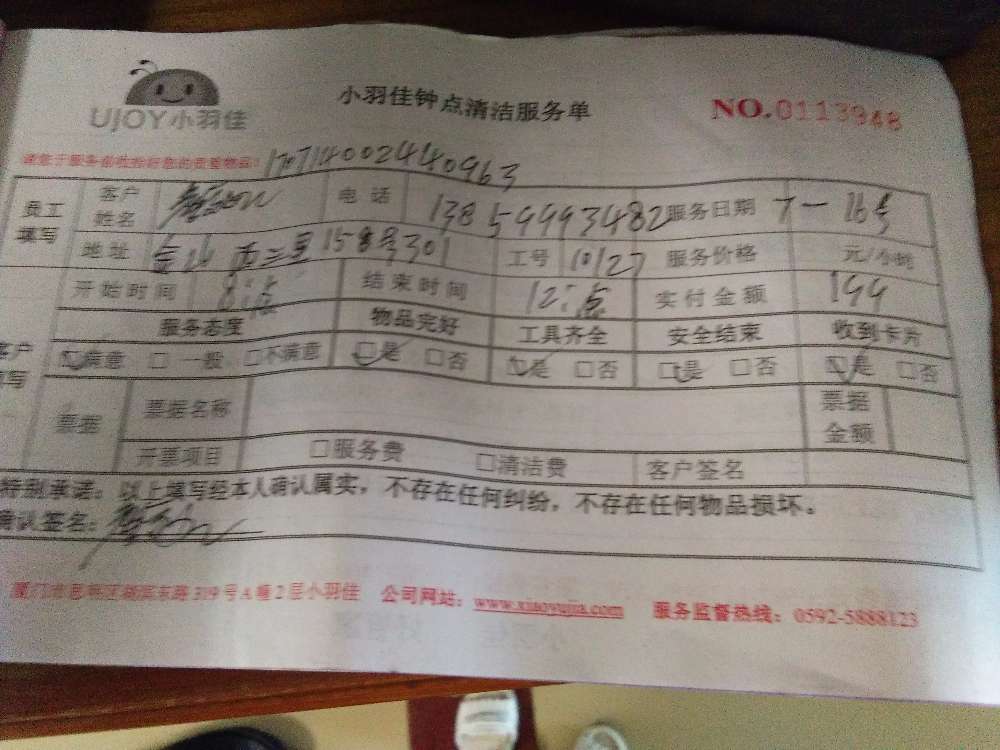 UJOY小羽佳
小羽佳钟点清洁服务单
NO.0113948
请您于服务前收拾好您的贵重物品! 170714002440963
员工填写 客户姓名 电话 13859993482 服务日期 7一16号
地址 金山西二里158号301 工号 10127 服务价格 元/小时
开始时间 8:点 结束时间 12:点 实付金额 199
服务态度 物品完好 工具齐全 安全结束 收到卡片
客户填写 满意 □一般 □不满意 □是 □否 □是 □否 □是 □否 □是 □否
票据 票据名称 票据金额
开票项目 □服务费 □清洁费 客户签名
特别承诺：以上填写经本人确认属实，不存在任何纠纷，不存在任何物品损坏。
确认签名：
厦门市思明区湖滨东路319号A幢2层小羽佳 公司网站：www.xiaoyujia.com 服务监督热线：0592-5888123